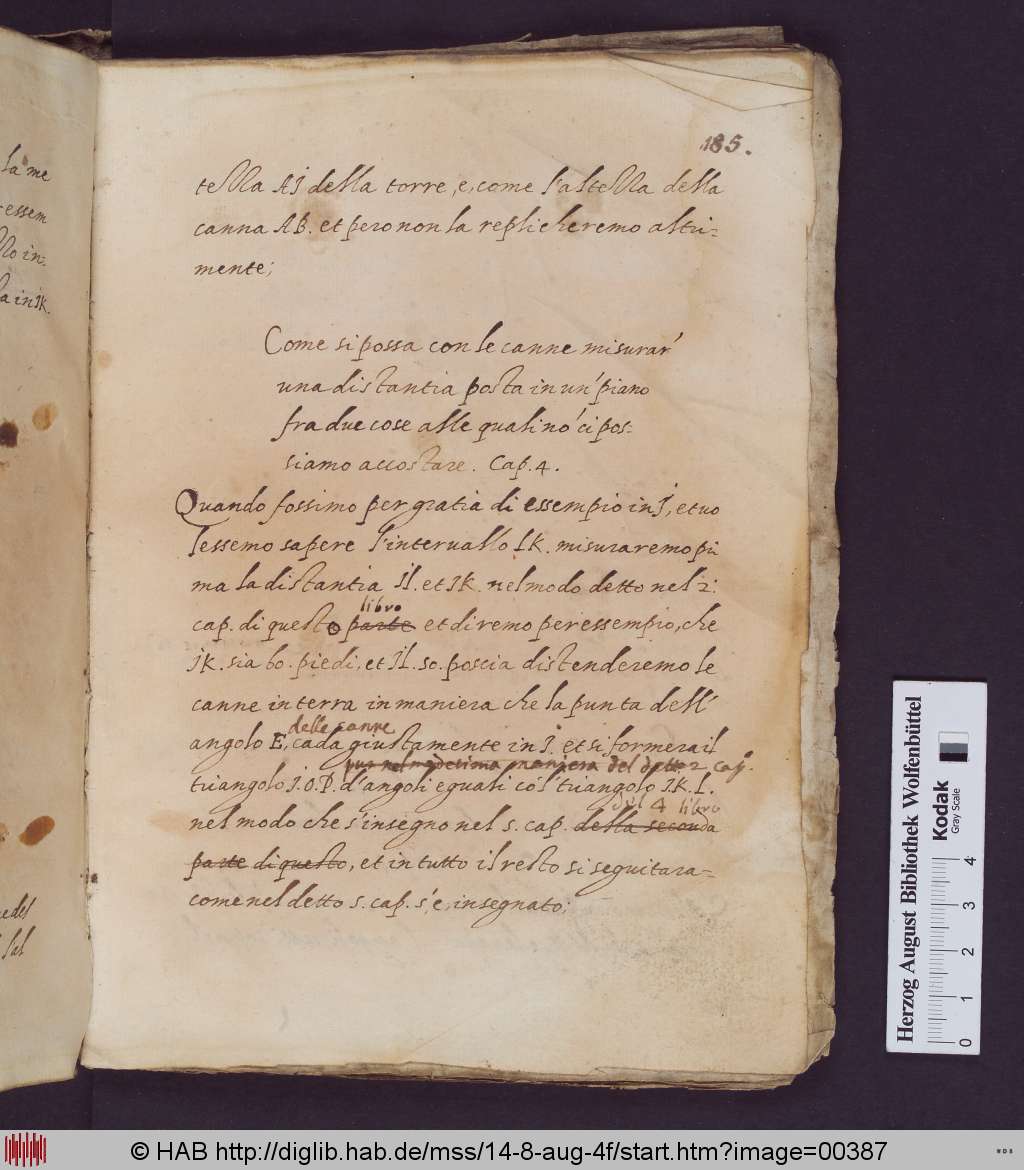 185.
tella AI della torre, e, come l'altella della
canna AB. et pero non la replicheremo altri=
mente;
Come si possa con le canne misurar'
una distantia posta in un' piano
fra due cose alle quali nō ci pos=
siamo accostare. Cap. 4.
Quando fossimo per gratia di essempio in I, et uo
lessemo sapere l'interuallo LK. misuraremo pri
ma la distantia IL. et IK. nel modo detto nel 2:
libro
cap. di questo parte et diremo per essempio, che
IK. sia 60. piedi, et IL. 50. poscia distenderemo le
canne in terra in maniera che la punta dell'
delle canne
angolo E, cada giustamente in I. et si formera il
pur nel medesima maniera del detto 2 cap.
triangolo I.O.P. d'angoli eguali cō l' triangolo IK.L.
del 4 libro
nel modo che s'insegno nel 5. cap. della seconda
parte di questo, et in tutto il resto si seguitara=
come nel detto 5. cap. s'è, insegnato;
la me
essem
llo in:
la in IK.
Herzog August Bibliothek Wolfenbüttel
Kodak
Gray Scale
0 1 2 3 4
© HAB http://diglib.hab.de/mss/14-8-aug-4f/start.htm?image=00387